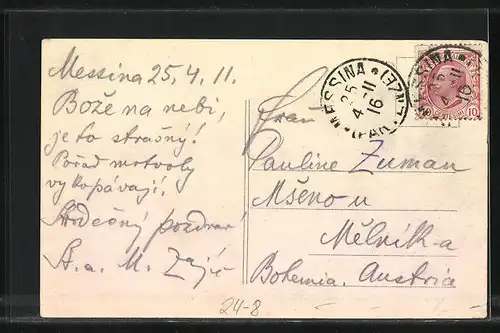 Messina 25.4.11.
Bože na nebi,
je to strašný!
Pořad mrtvoly
vykopávají.
Srdečný pozdrav
A. a. M. Zajíc
MESSINA
25
4-11
16
MESSINA
25
4-11
16
10
Frau
Pauline Zuman
Mšeno u
Mělník-a
Bohemia. Austria
24-8